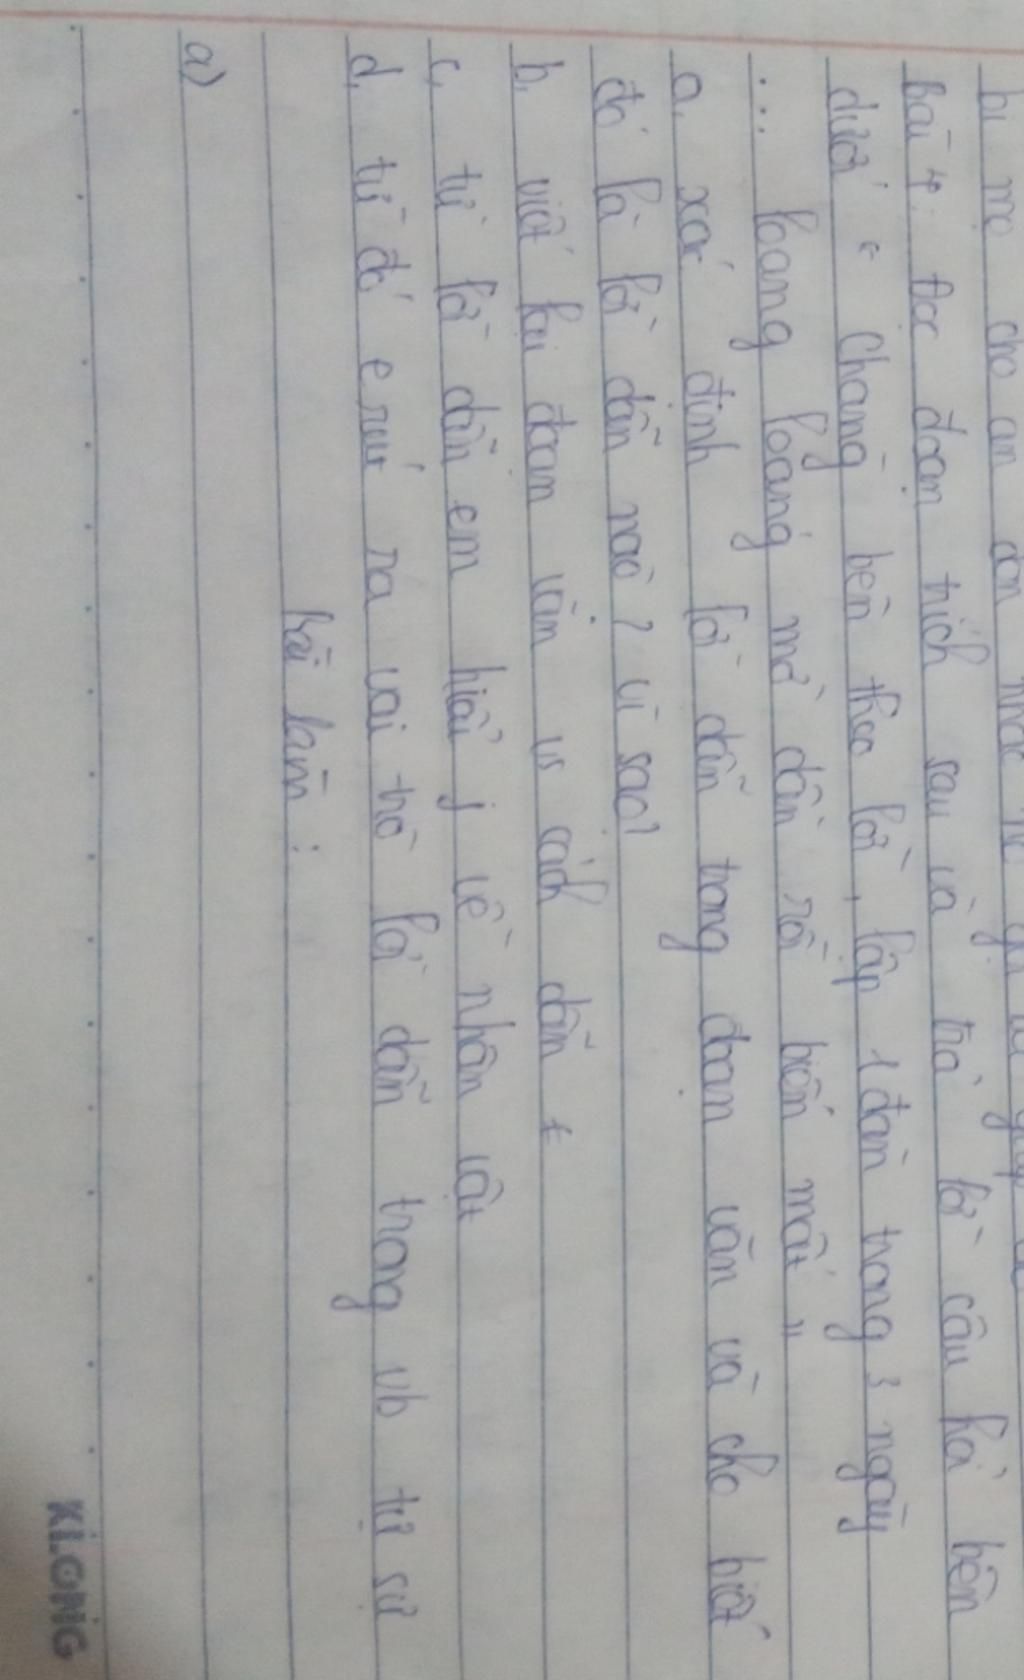 bị mọ cho an đơn
bài 4: Đọc đoạn trích sau và trả lời câu hỏi bên
dưới " Chàng bèn theo lời, lập 1 đàn trong 3 ngày
... loang loáng mờ dần rồi biến mất "
a, xác định lời dẫn trong đoạn văn và cho biết
đó là lời dẫn nào? vì sao?
b, viết lại đoạn văn vs cách dẫn t
c, từ lời dẫn em hiểu j về nhân vật
d, từ đó e rút ra vai trò lời dẫn trong vb tự sự
bài làm:
a)
KLONG